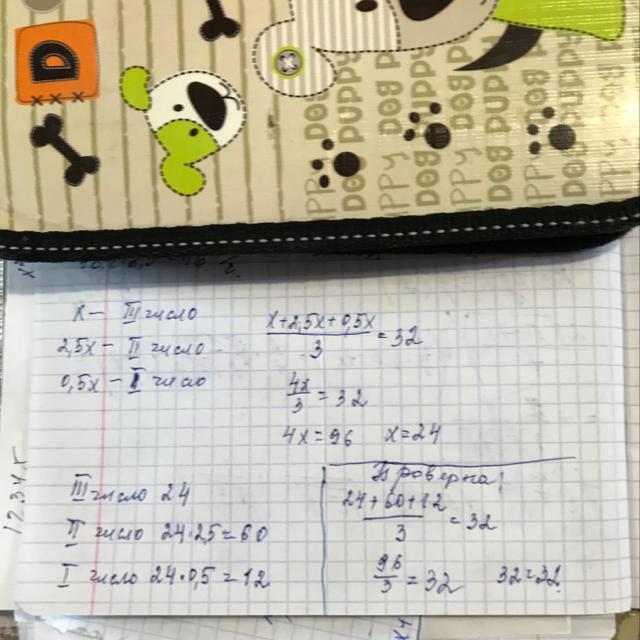 D
xxx
HAPPY DOG
DOG PUPPY
x – III число
2,5x – II число
0,5x – I число
x+2,5x+0,5x
3
=32
4x
3
=32
4x=96 x=24
III число 24
II число 24·25=60
I число 24·0,5=12
Проверка!
24+60+12
3
=32
96
3
=32 32=32
12345